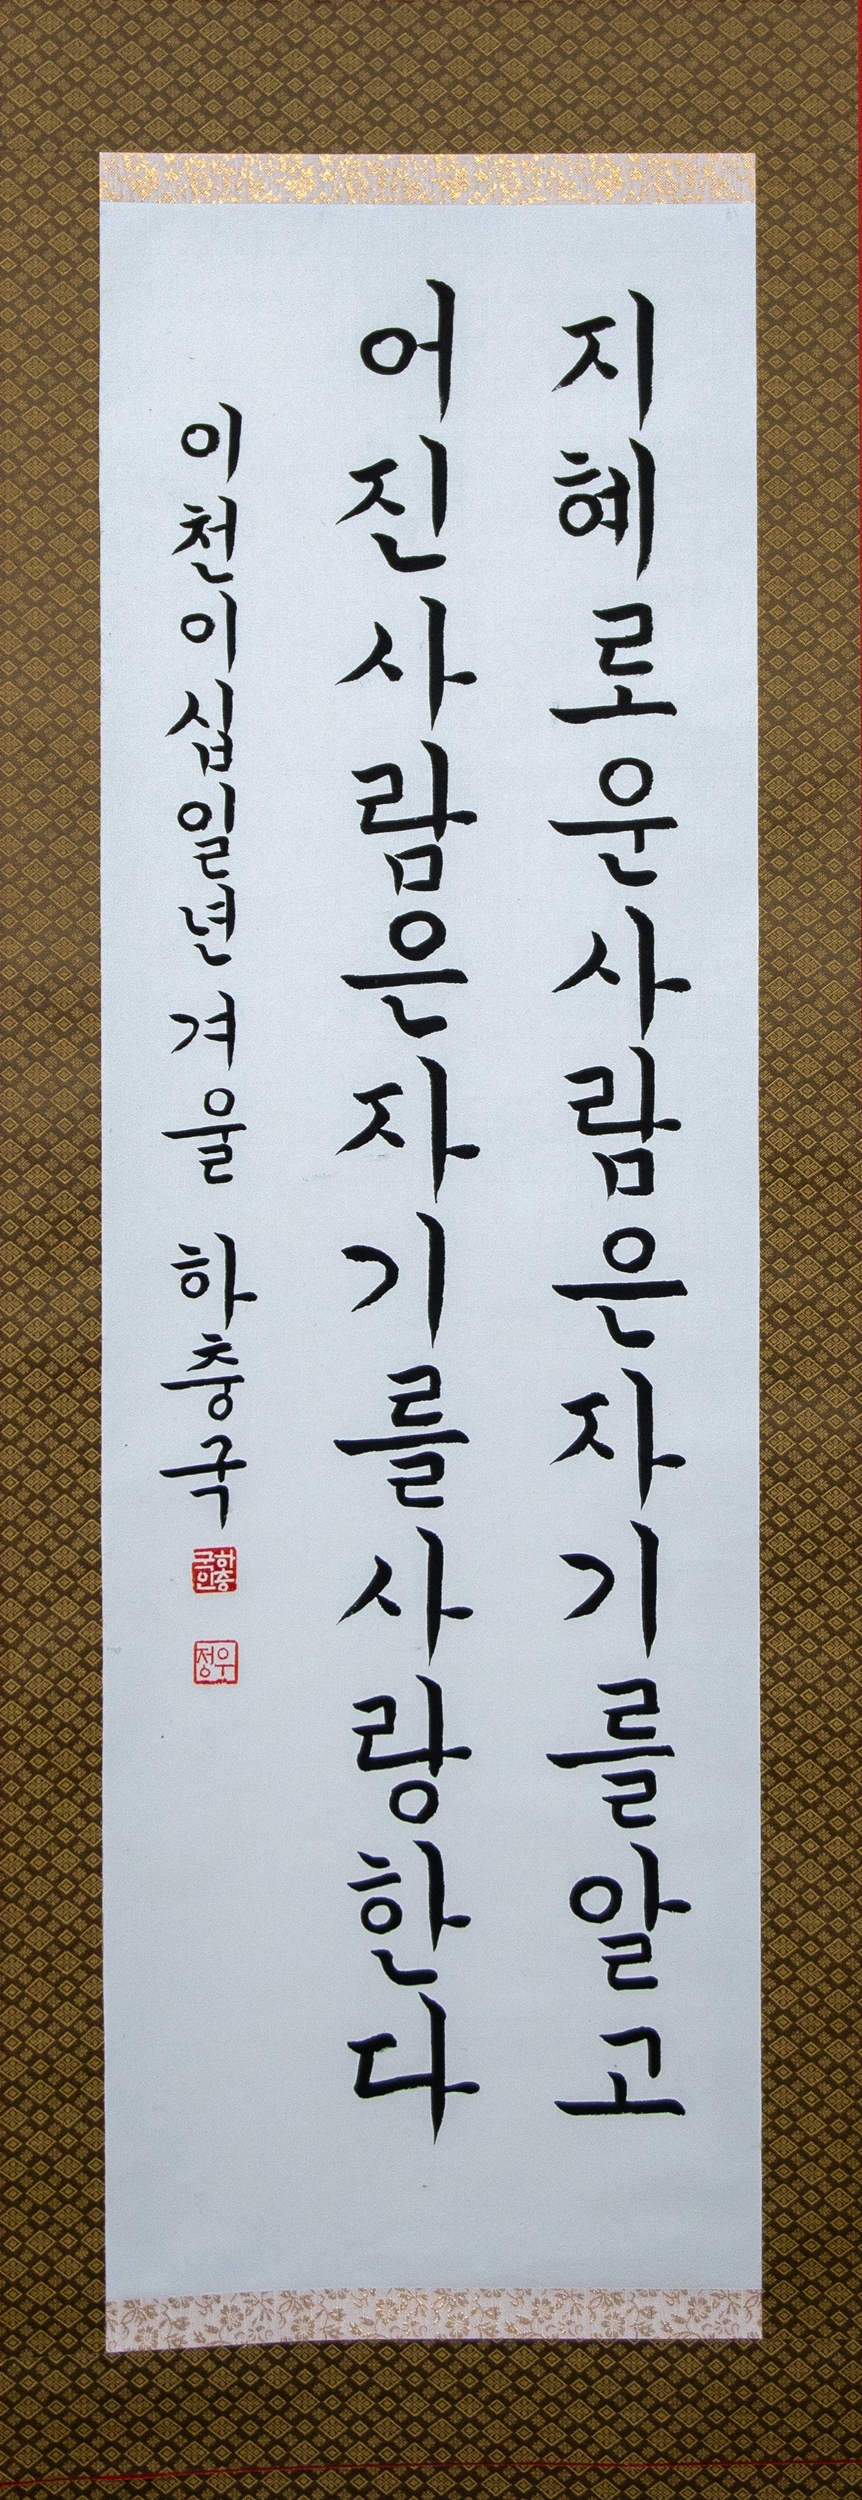 지혜로운사람은자기를알고
어진사람은자기를사랑한다
이천이십일년 겨울 하충국
하충국인
우정